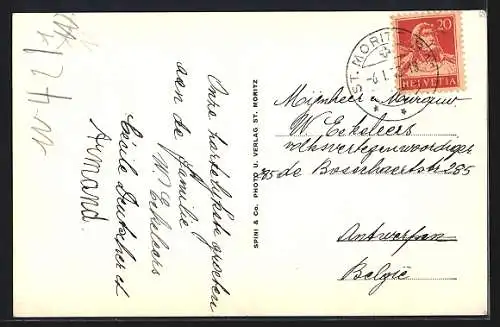 Onze hartelijkste groeten
aan de familie
W. Eekeleers
Cécile Deutscher et
Armand.
SPINI & Co. PHOTO U. VERLAG ST. MORITZ
ST. MORITZ
20
HELVETIA
Mijnheer en Mevrouw
W. Eekeleers
volksvertegenwoordiger
de Bosschaertstr 265
Antwerpen
België